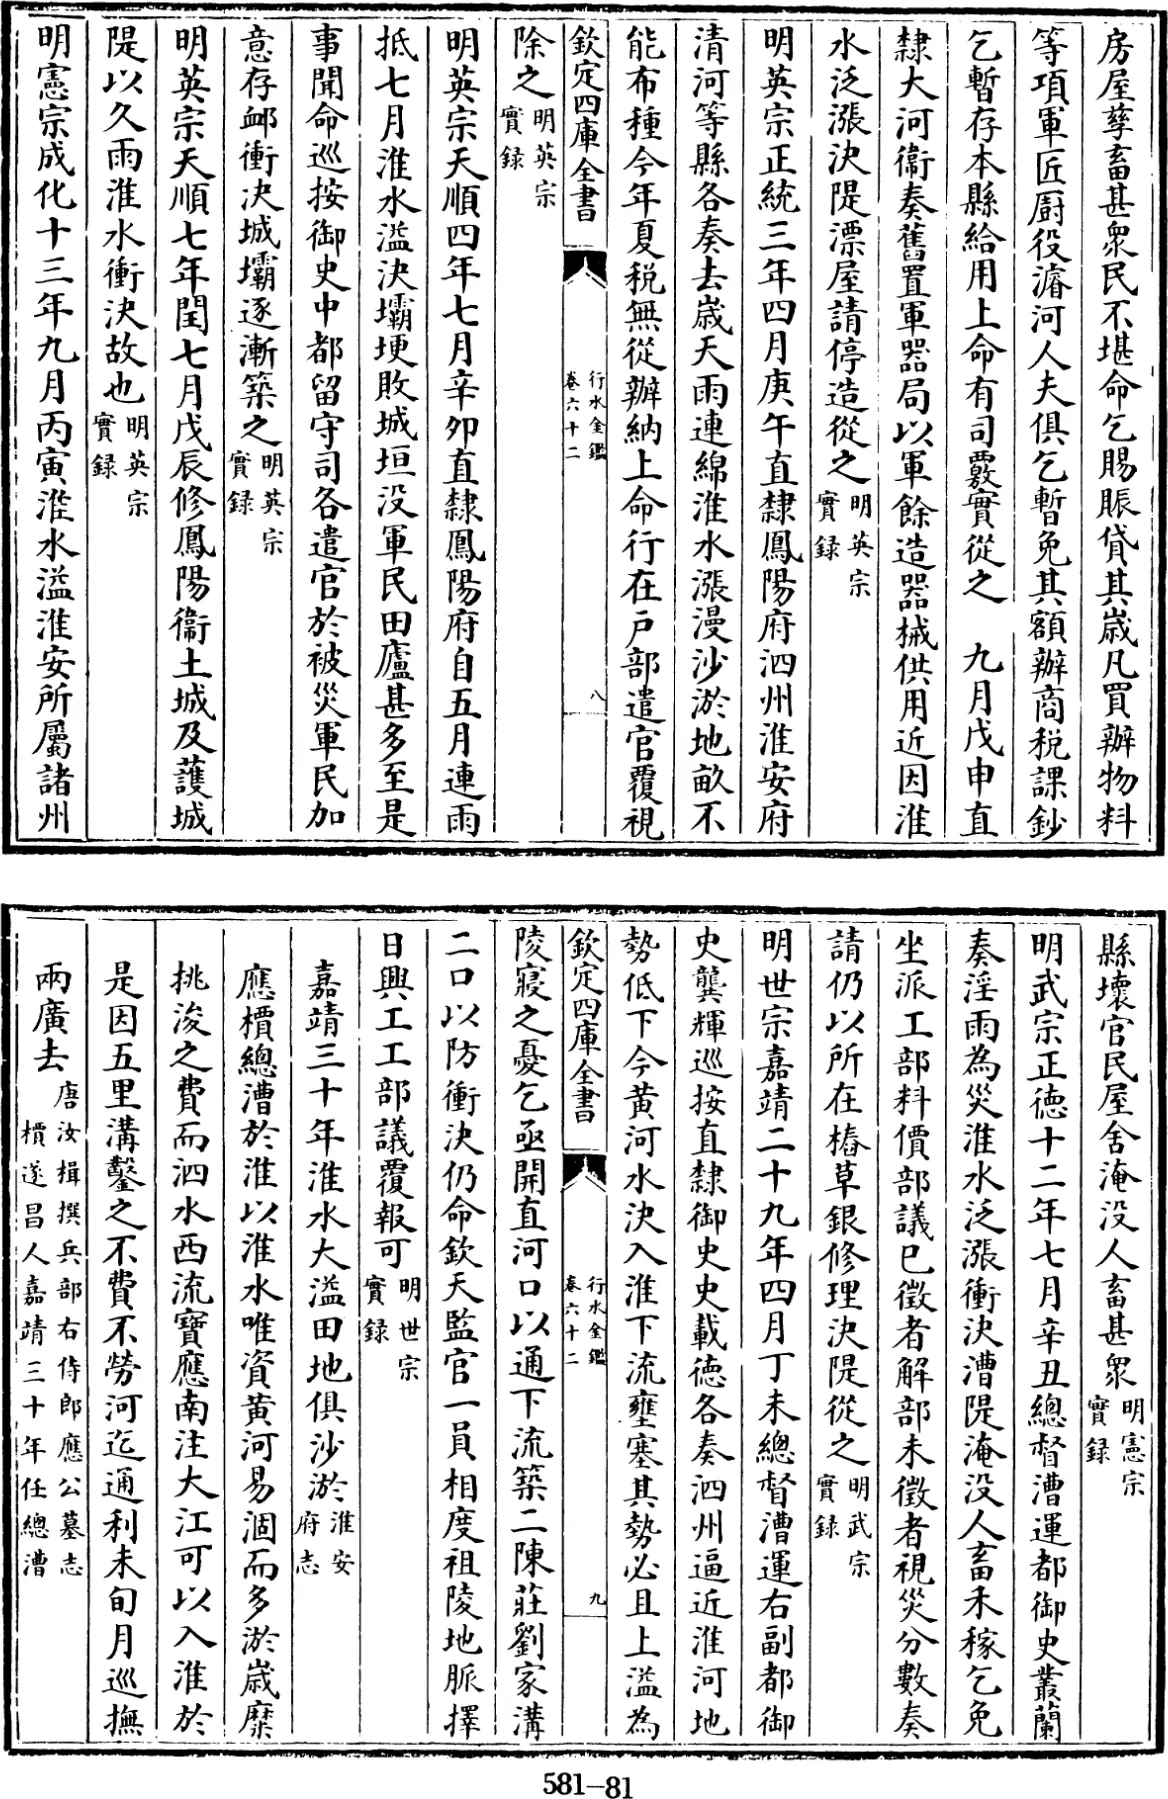 房屋孳畜甚衆民不堪命乞賜賑貸其歲凡買辦物料
等項軍匠厨役濬河人夫俱乞暫免其額辦商稅課鈔
乞暫存本縣給用上命有司覈實從之　九月戊申直
隸大河衞奏舊置軍器局以軍餘造器械供用近因淮
水泛漲決隄漂屋請停造從之明英宗實録
明英宗正統三年四月庚午直隸鳳陽府泗州淮安府
清河等縣各奏去歲天雨連綿淮水漲漫沙淤地畝不
能布種今年夏稅無從辦納上命行在戶部遣官覆視
欽定四庫全書　行水金鑑卷六十二　八
除之明英宗實録
明英宗天順四年七月辛卯直隸鳳陽府自五月連雨
抵七月淮水溢決壩埂敗城垣没軍民田廬甚多至是
事聞命巡按御史中都留守司各遣官於被災軍民加
意存卹衝決城壩逐漸築之明英宗實録
明英宗天順七年閏七月戊辰修鳳陽衞土城及護城
隄以久雨淮水衝決故也明英宗實録
明憲宗成化十三年九月丙寅淮水溢淮安所屬諸州
縣壞官民屋舍淹没人畜甚衆明憲宗實録
明武宗正德十二年七月辛丑總督漕運都御史叢蘭
奏淫雨為災淮水泛漲衝決漕隄淹没人畜禾稼乞免
坐派工部料價部議已徵者解部未徵者視災分數奏
請仍以所在樁草銀修理決隄從之明武宗實録
明世宗嘉靖二十九年四月丁未總督漕運右副都御
史龔輝巡按直隸御史史載德各奏泗州逼近淮河地
勢低下今黄河水決入淮下流壅塞其勢必且上溢為
欽定四庫全書　行水金鑑卷六十二　九
陵寢之憂乞亟開直河口以通下流築二陳莊劉家溝
二口以防衝決仍命欽天監官一員相度祖陵地脈擇
日興工工部議覆報可明世宗實録
嘉靖三十年淮水大溢田地俱沙淤淮安府志
應檟總漕於淮以淮水唯資黄河易涸而多淤歲糜
挑浚之費而泗水西流寶應南注大江可以入淮於
是因五里溝鑿之不費不勞河迄通利未旬月巡撫
兩廣去唐汝楫撰兵部右侍郎應公墓志檟遂昌人嘉靖三十年任總漕
581-81